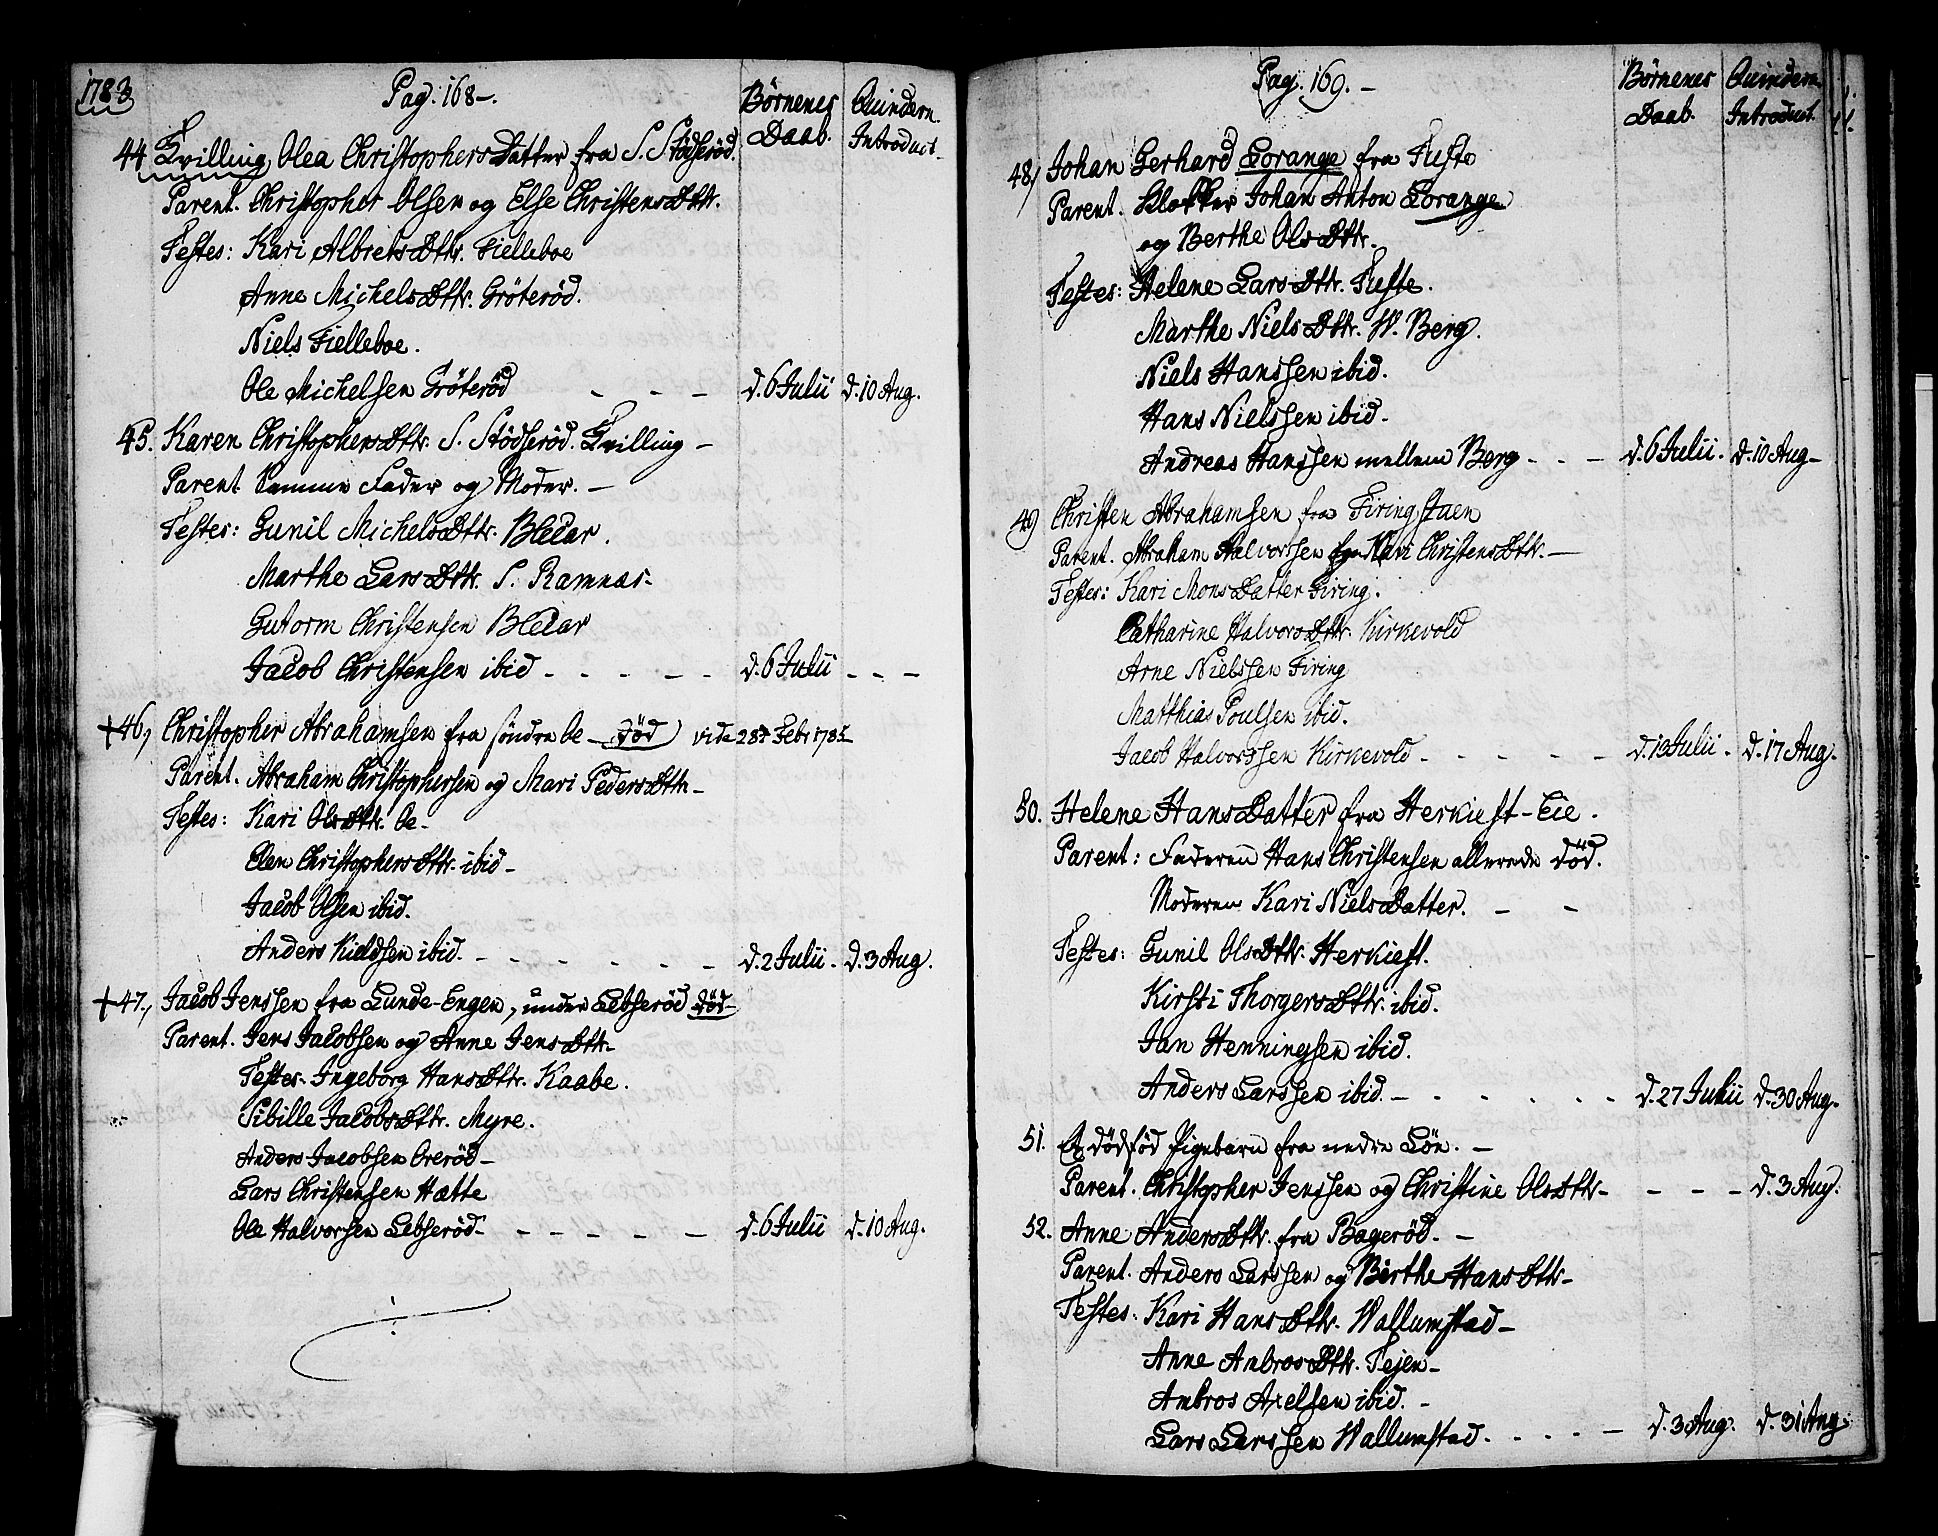 1783
Pag: 168-.
Børnenes Daab.
Qvindern. Introduct.
44 Tvilling, Olea Christophersdatter fra S. Stödseröd.
Parent. Christopher Olsen og Else Christensdttr.
Testes: Kari Albretsdttr. Fielleboe
Anne Michelsdttr. Gröteröd.
Niels Fielleboe.
Ole Michelsen Gröteröd - - - d. 6 Julii d. 10 Aug.
45. Karen Christophersdttr. S. Stödseröd. Tvilling -
Parent. Samme Fader og Moder. -
Testes: Gunil Michelsdttr. Blecar.
Marthe Larsdttr. S. Ramnas-
Gutorm Christensen Blecar
Jacob Christensen ibid - - - - - d. 6 Julii - - -
+46, Christopher Abrahamsen fra söndre Oe - död vide 28d Febr 1785
Parent. Abraham Christophersen og Mari Pedersdttr -
Testes: Kari Olsdttr. Oe-
Elen Christophersdttr. ibid -
Jacob Olsen ibid.
Anders Kieldsen ibid. - - - - - - d. 2 Julii. d. 3 Aug.
+47., Jacob Jenssen fra Lunde-Engen, under Lebseröd död-
Parent. Jens Jacobsen og Anne Jensdttr-
Testes- Ingeborg Hansdttr. Kaabe.
Sibille Jacobsdttr. Myre.
Anders Jacobsen Oreröd -
Lars Christensen Hætte
Ole Halvorsen Lebseröd - - - - - d. 6 Julii d. 10 Aug.
Pag. 169. -
Børnenes Daab.
Qvindern. Introduct.
48, Johan Gerhard Lorange fra Tufte
Parent. Klokker Johan Anton Lorange
og Berthe Olsdttr.
Testes: Helene Larsdttr. Tufte.
Marthe Nielsdttr. W. Berg.
Niels Hanssen ibid.
Hans Nielssen ibid.
Andreas Hanssen mellem Berg - - - d. 6 Julii. d. 10 Aug-
49 Christen Abrahamsen fra Firingstaen
Parent. Abraham Halvorssen og Kari Christensdttr. -
Testes: Kari Monsdatter Firing.
Catharine Halvorsdttr. Kirkevold
Arne Nielssen Firing
Matthias Poulsen ibid.
Jacob Halvorssen Kirkevold - - - - - d. 13 Julii. d. 17 Aug.
50. Helene Hansdatter fra Herkieft-Eie.
Parent: Faderen Hans Christensen allerede död.
Moderen Kari Nielsdatter. - -
Testes: Gunil Olsdttr. Herkieft.
Kirsti Thorgersdttr. ibid.
Jan Henningsen ibid.
Anders Larssen ibid. - - - - - - d. 27 Julii d. 30 Aug.
51. Et dödföd Pigebarn fra nedre Lön. -
Parent. Christopher Jenssen og Christine Olsdttr- - - - d. 3 Aug.
52. Anne Andersdttr. fra Bageröd. -
Parent. Anders Larssen og Berthe Hansdttr-
Testes: Kari Hansdttr. Wallumstad -
Anne Ambrosdttr. Tejen-
Ambros Axelsen ibid. -
Lars Larssen Wallumstad. - - - - d. 3 Aug. d. 31 Aug.